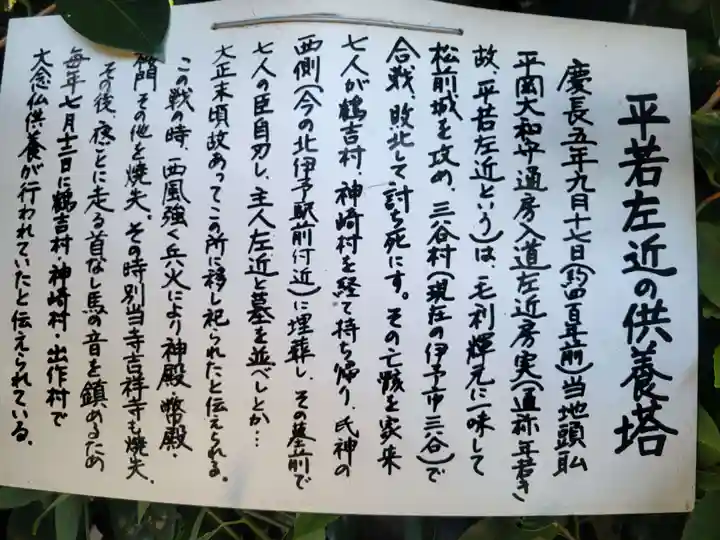 平若左近の供養塔
慶長五年九月十七日(約四百年前)当地頭職
平岡大和守通房入道左近房実(通称年若き
故、平若左近という)は、毛利輝元に一味して
松前城を攻め、三谷村(現在の伊予市三谷)で
合戦、敗北して討ち死にす。その亡骸を家来
七人が鶴吉村、神崎村を経て持ち帰り、氏神の
西側(今の北伊予駅前付近)に埋葬し、その墓前で
七人の臣自刃し、主人左近と墓を並べしとか…
大正末頃故あってこの所に移し祀られたと伝えられる。
この戦の時、西風強く兵火により神殿、幣殿・
楼門その他を焼失。その時別当寺吉祥寺も焼失。
その後、夜ごとに走る首なし馬の音を鎮めるため
毎年七月十二日に鶴吉村・神崎村・出作村で
大念仏供養が行われていたと伝えられている。